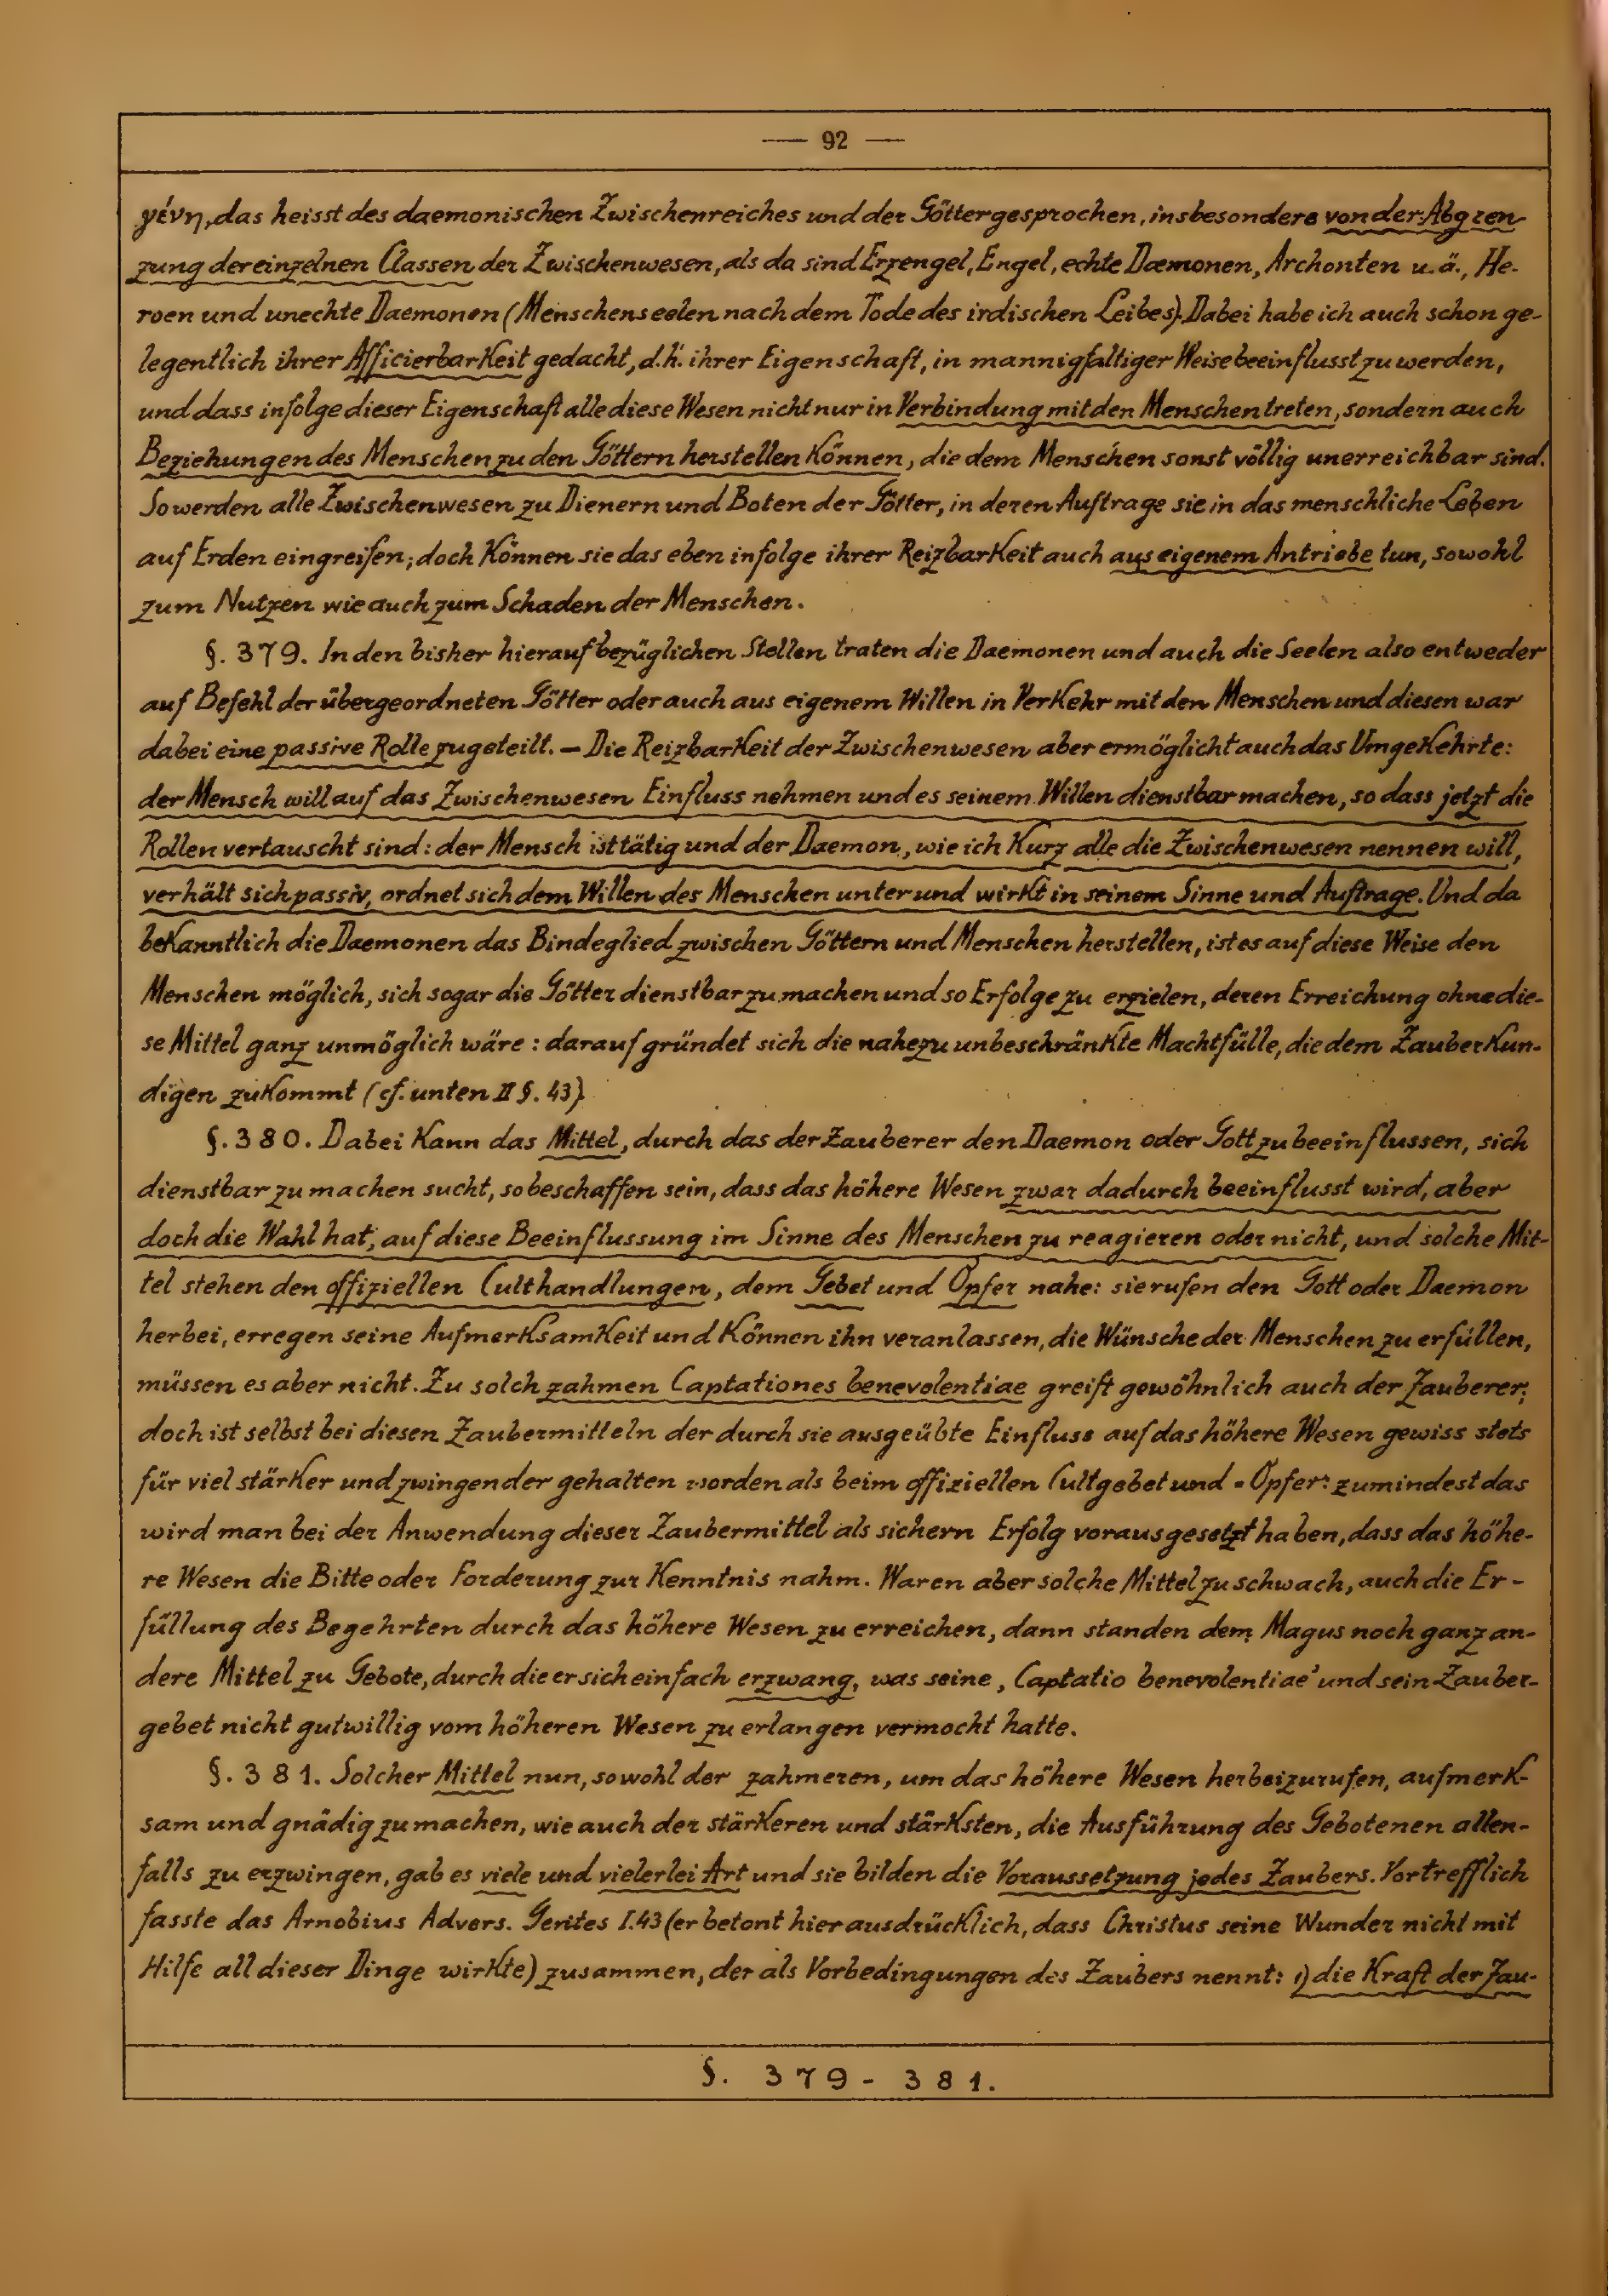 — 92 —
γένη, das heisst des daemonischen Zwischenreiches und der Götter gesprochen, insbesondere von der Abgren-
zung der einzelnen Classen der Zwischenwesen, als da sind Erzengel, Engel, echte Daemonen, Archonten u. ä., He-
roen und unechte Daemonen (Menschenseelen nach dem Tode des irdischen Leibes). Dabei habe ich auch schon ge-
legentlich ihrer Afficierbarkeit gedacht, d.h. ihrer Eigenschaft, in mannigfaltiger Weise beeinflusst zu werden,
und dass infolge dieser Eigenschaft alle diese Wesen nicht nur in Verbindung mit den Menschen treten, sondern auch
Beziehungen des Menschen zu den Göttern herstellen können, die dem Menschen sonst völlig unerreichbar sind.
So werden alle Zwischenwesen zu Dienern und Boten der Götter, in deren Auftrage sie in das menschliche Leben
auf Erden eingreifen; doch können sie das eben infolge ihrer Reizbarkeit auch aus eigenem Antriebe tun, sowohl
zum Nutzen wie auch zum Schaden der Menschen.
§. 379. In den bisher hierauf bezüglichen Stellen traten die Daemonen und auch die Seelen also entweder
auf Befehl der übergeordneten Götter oder auch aus eigenem Willen in Verkehr mit den Menschen und diesen war
dabei eine passive Rolle zugeteilt. — Die Reizbarkeit der Zwischenwesen aber ermöglicht auch das Umgekehrte:
der Mensch will auf das Zwischenwesen Einfluss nehmen und es seinem Willen dienstbar machen, so dass jetzt die
Rollen vertauscht sind: der Mensch ist tätig und der Daemon, wie ich kurz alle die Zwischenwesen nennen will,
verhält sich passiv, ordnet sich dem Willen des Menschen unter und wirkt in seinem Sinne und Auftrage. Und da
bekanntlich die Daemonen das Bindeglied zwischen Göttern und Menschen herstellen, ist es auf diese Weise den
Menschen möglich, sich sogar die Götter dienstbar zu machen und so Erfolge zu erzielen, deren Erreichung ohne die-
se Mittel ganz unmöglich wäre: darauf gründet sich die nahezu unbeschränkte Machtfülle, die dem Zauberkun-
digen zukommt (cf. unten II §. 43).
§. 380. Dabei kann das Mittel, durch das der Zauberer den Daemon oder Gott zu beeinflussen, sich
dienstbar zu machen sucht, so beschaffen sein, dass das höhere Wesen zwar dadurch beeinflusst wird, aber
doch die Wahl hat, auf diese Beeinflussung im Sinne des Menschen zu reagieren oder nicht, und solche Mit-
tel stehen den offiziellen Culthandlungen, dem Gebet und Opfer nahe: sie rufen den Gott oder Daemon
herbei, erregen seine Aufmerksamkeit und können ihn veranlassen, die Wünsche der Menschen zu erfüllen,
müssen es aber nicht. Zu solch zahmen Captationes benevolentiae greift gewöhnlich auch der Zauberer;
doch ist selbst bei diesen Zaubermitteln der durch sie ausgeübte Einfluss auf das höhere Wesen gewiss stets
für viel stärker und zwingender gehalten worden als beim offiziellen Cultgebet und -Opfer: zumindest das
wird man bei der Anwendung dieser Zaubermittel als sichern Erfolg vorausgesetzt haben, dass das höhe-
re Wesen die Bitte oder Forderung zur Kenntnis nahm. Waren aber solche Mittel zu schwach, auch die Er-
füllung des Begehrten durch das höhere Wesen zu erreichen, dann standen dem Magus noch ganz an-
dere Mittel zu Gebote, durch die er sich einfach erzwang, was seine ‚Captatio benevolentiae' und sein Zauber-
gebet nicht gutwillig vom höheren Wesen zu erlangen vermocht hatte.
§. 381. Solcher Mittel nun, sowohl der zahmeren, um das höhere Wesen herbeizurufen, aufmerk-
sam und gnädig zu machen, wie auch der stärkeren und stärksten, die Ausführung des Gebotenen allen-
falls zu erzwingen, gab es viele und vielerlei Art und sie bilden die Voraussetzung jedes Zaubers. Vortrefflich
fasste das Arnobius Advers. Gentes I.43 (er betont hier ausdrücklich, dass Christus seine Wunder nicht mit
Hilfe all dieser Dinge wirkte) zusammen, der als Vorbedingungen des Zaubers nennt: 1) die Kraft der Zau-
§. 379 - 381.